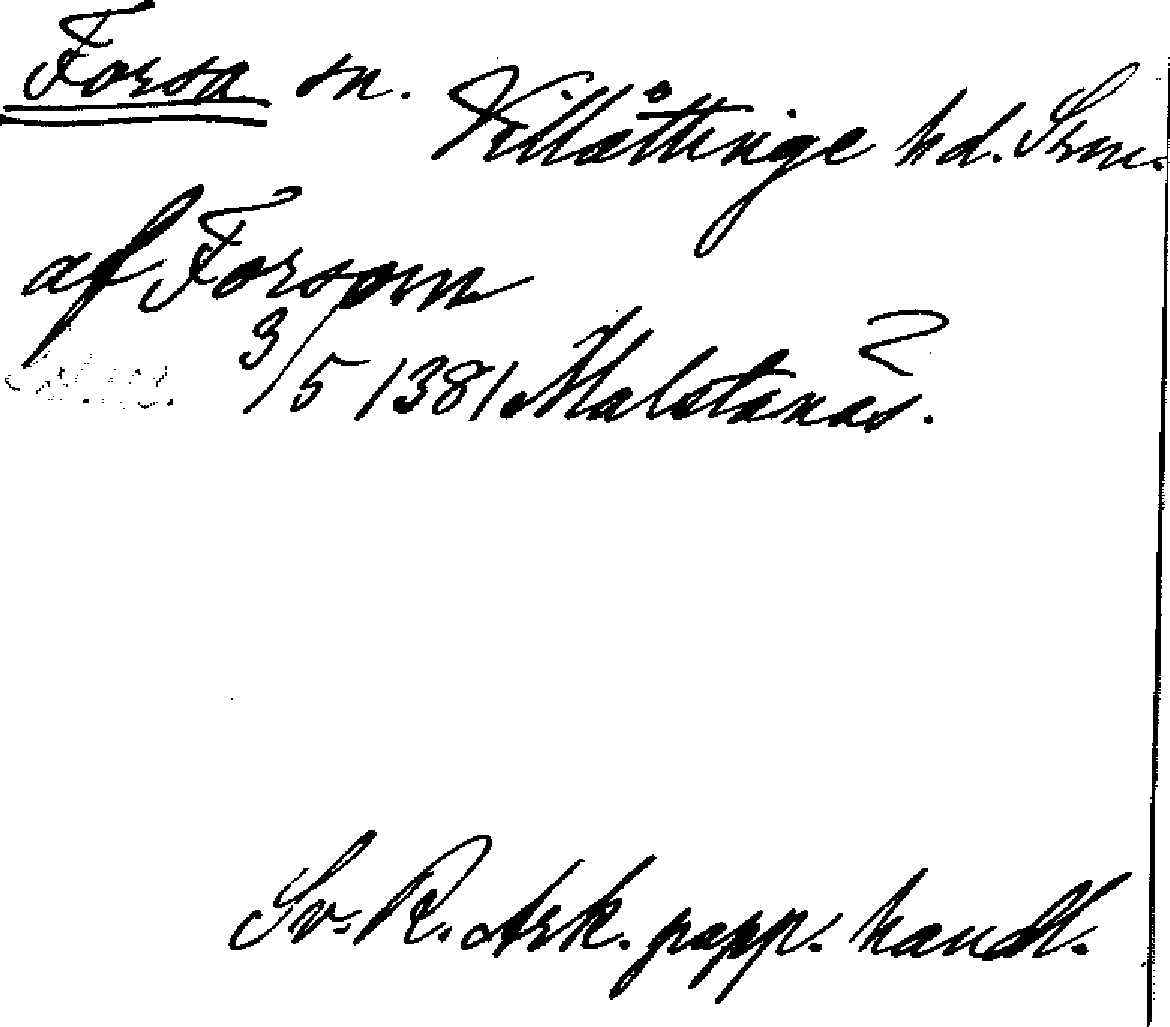 Forsa sn. Villåttinge hd. Srm.
af Forsom
3/5 1381 Malstanäs.
Sv. R. Ark. papp. handl.